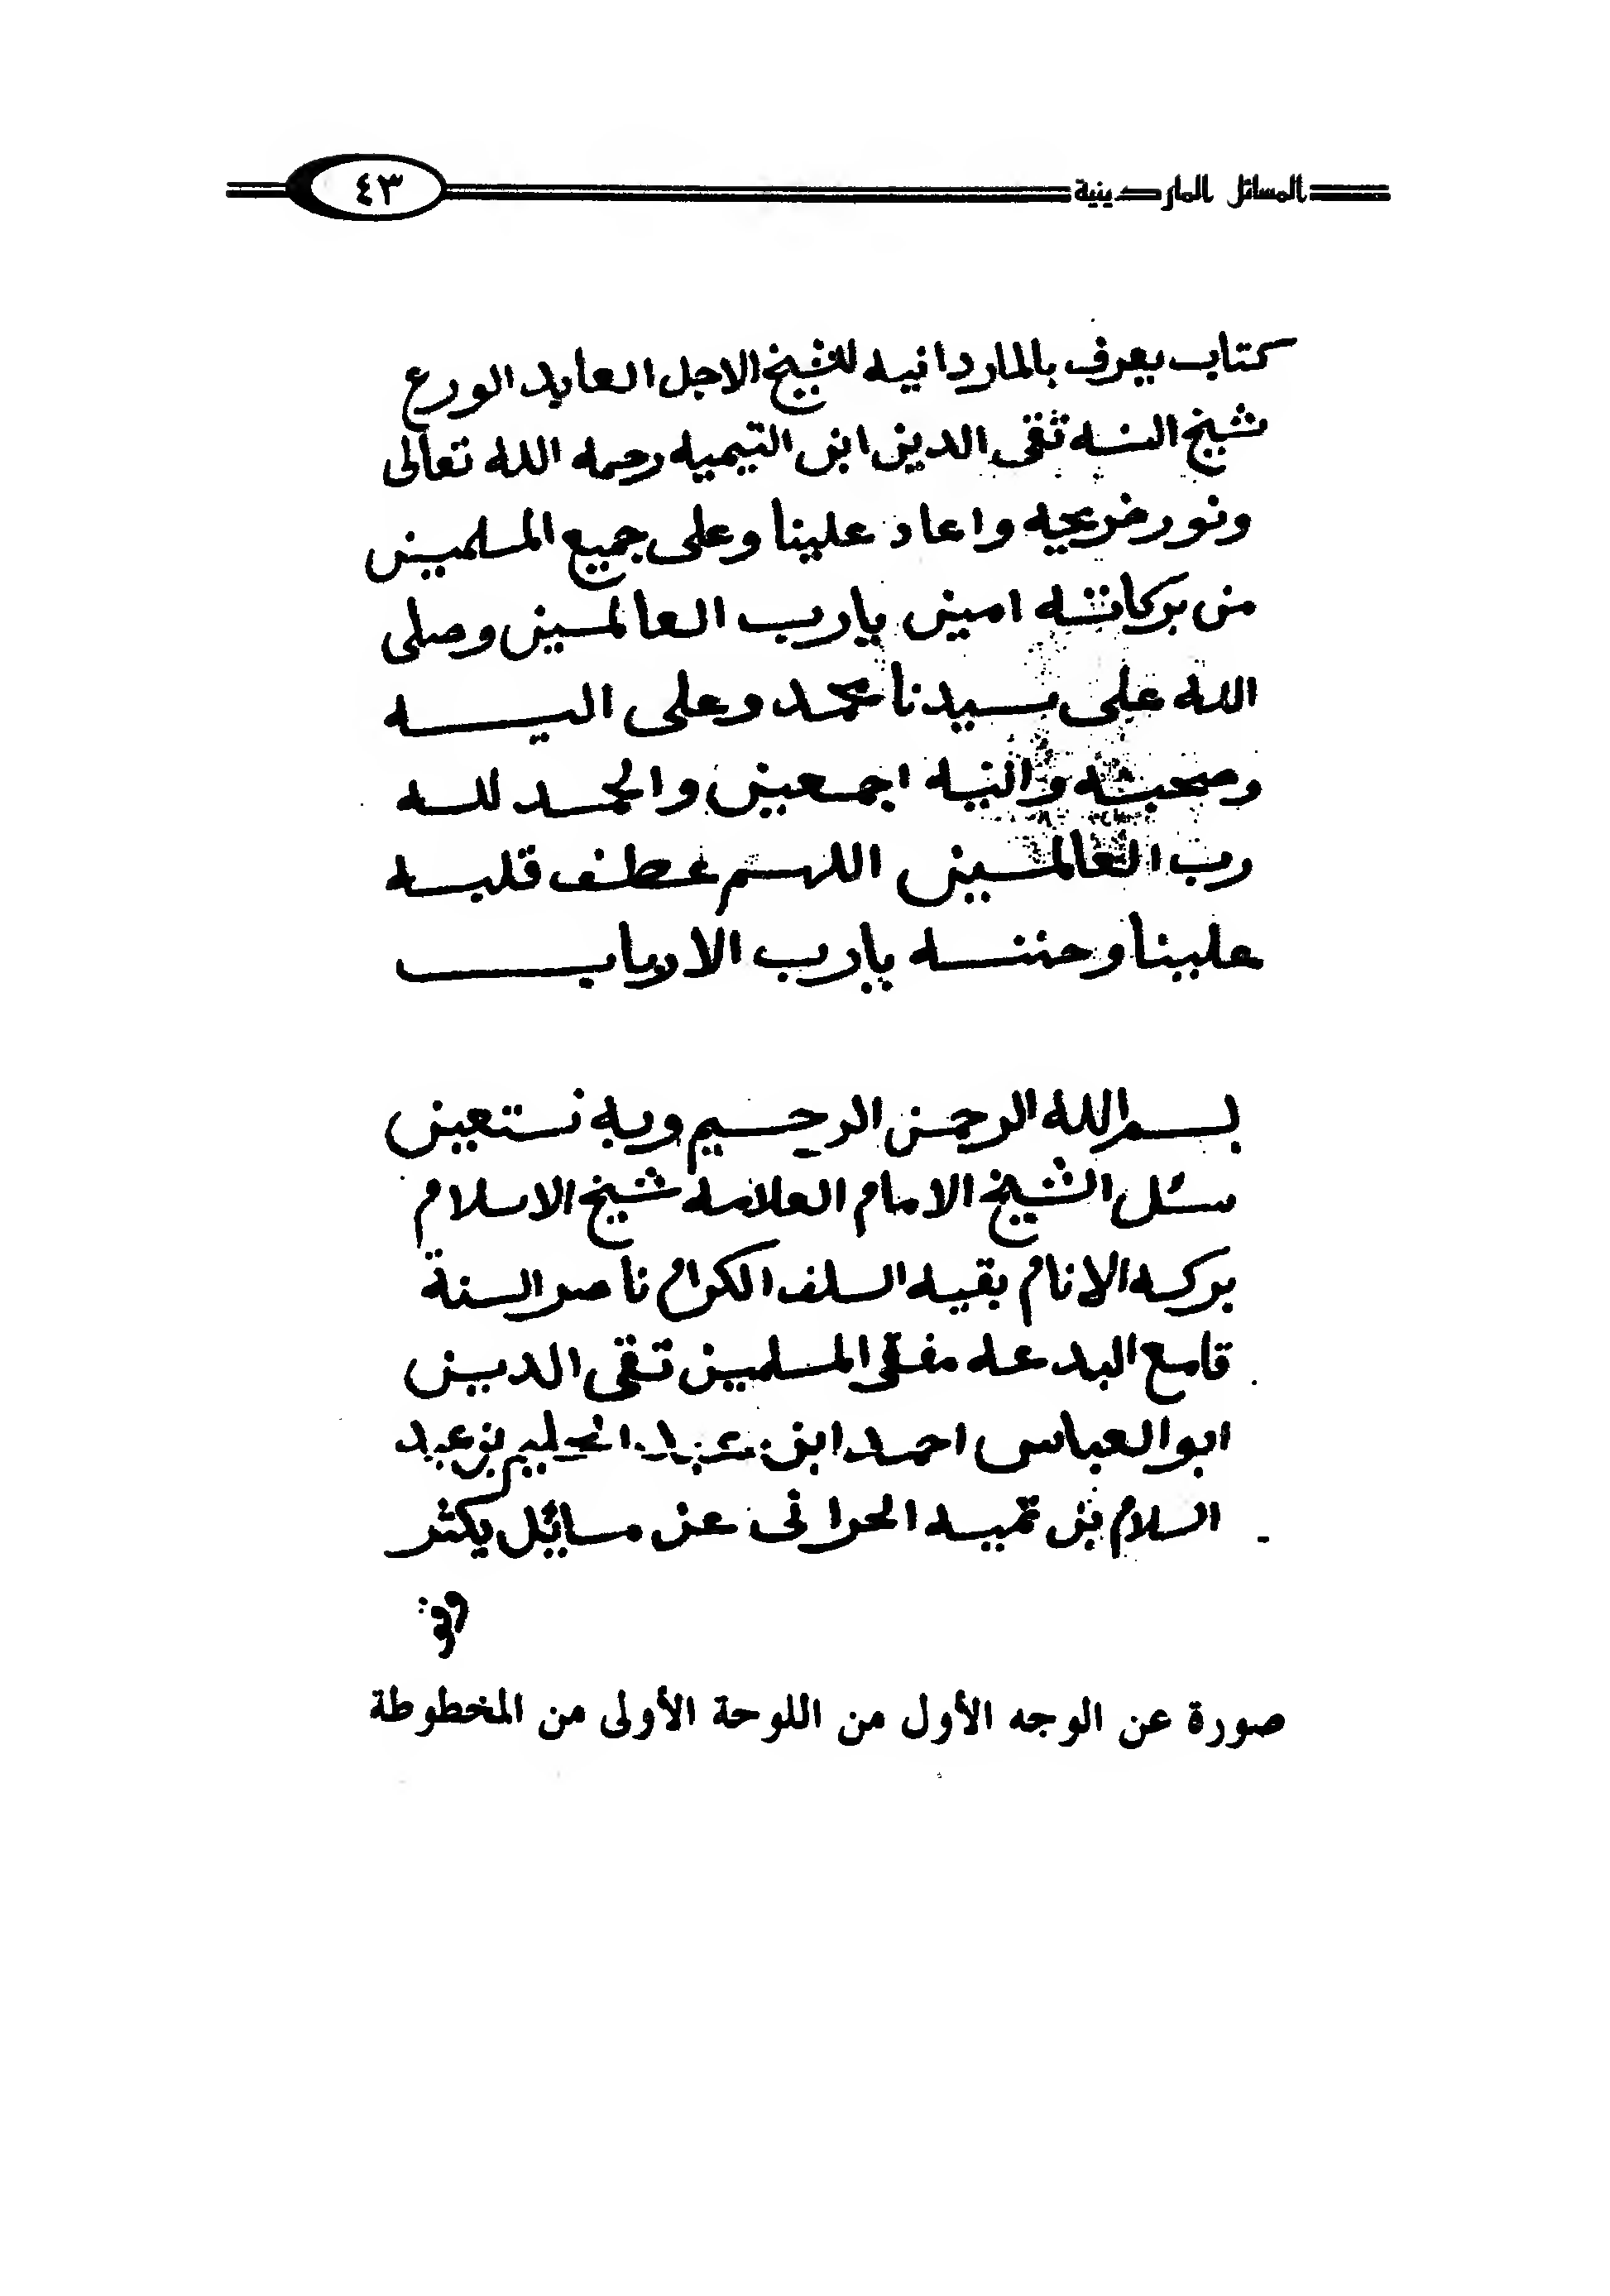 المسائل الماردينية
٤٣
كتاب يعرف بالماردانيه للشيخ الاجل العابد الورع
شيخ السنه تقى الدين ابن التيميه رحمه الله تعالى
ونور ضريحه واعاد علينا وعلى جميع المسلمين
من بركاته امين يارب العالمين وصلى
الله على سيدنا محمد وعلى اليه
وصحبته واليه اجمعين والحمد لله
رب العالمين اللهم عطف قلبه
علينا وحننه يارب الارباب
بسم الله الرحمن الرحيم وبه نستعين
سئل الشيخ الامام العلامه شيخ الاسلام
بركه الانام بقيه السلف الكرام ناصر السنة
قامع البدعه مفتى المسلمين تقى الدين
ابو العباس احمد ابن عبد الحليم بن عبد
السلام بن تميه الحرانى عن مسائل يكثر
صورة عن الوجه الأول من اللوحة الأولى من المخطوطة